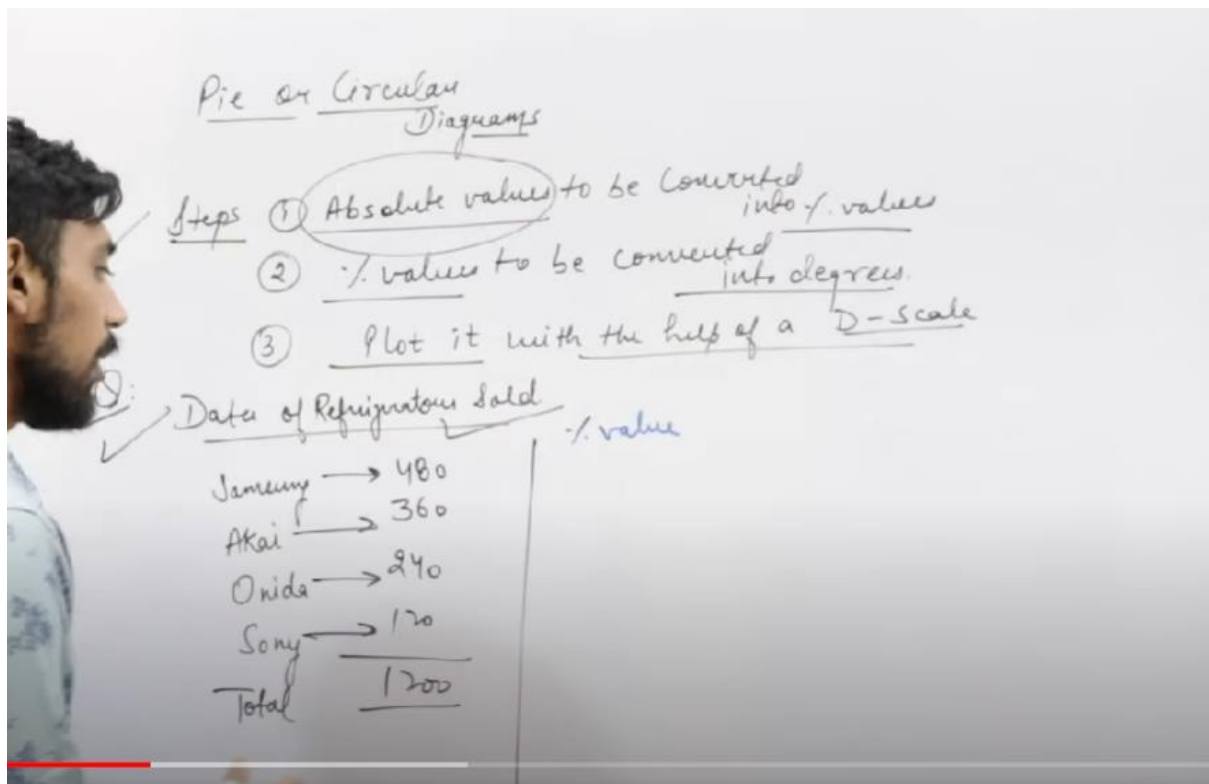 Pie or Circular
Diagrams
Steps ① Absolute values to be Converted
into % values
② % values to be converted
into degrees.
③ Plot it with the help of a D-Scale
Q:
Data of Refrigerators Sold
% value
Samsung → 480
Akai → 360
Onida → 240
Sony → 120
Total 1200